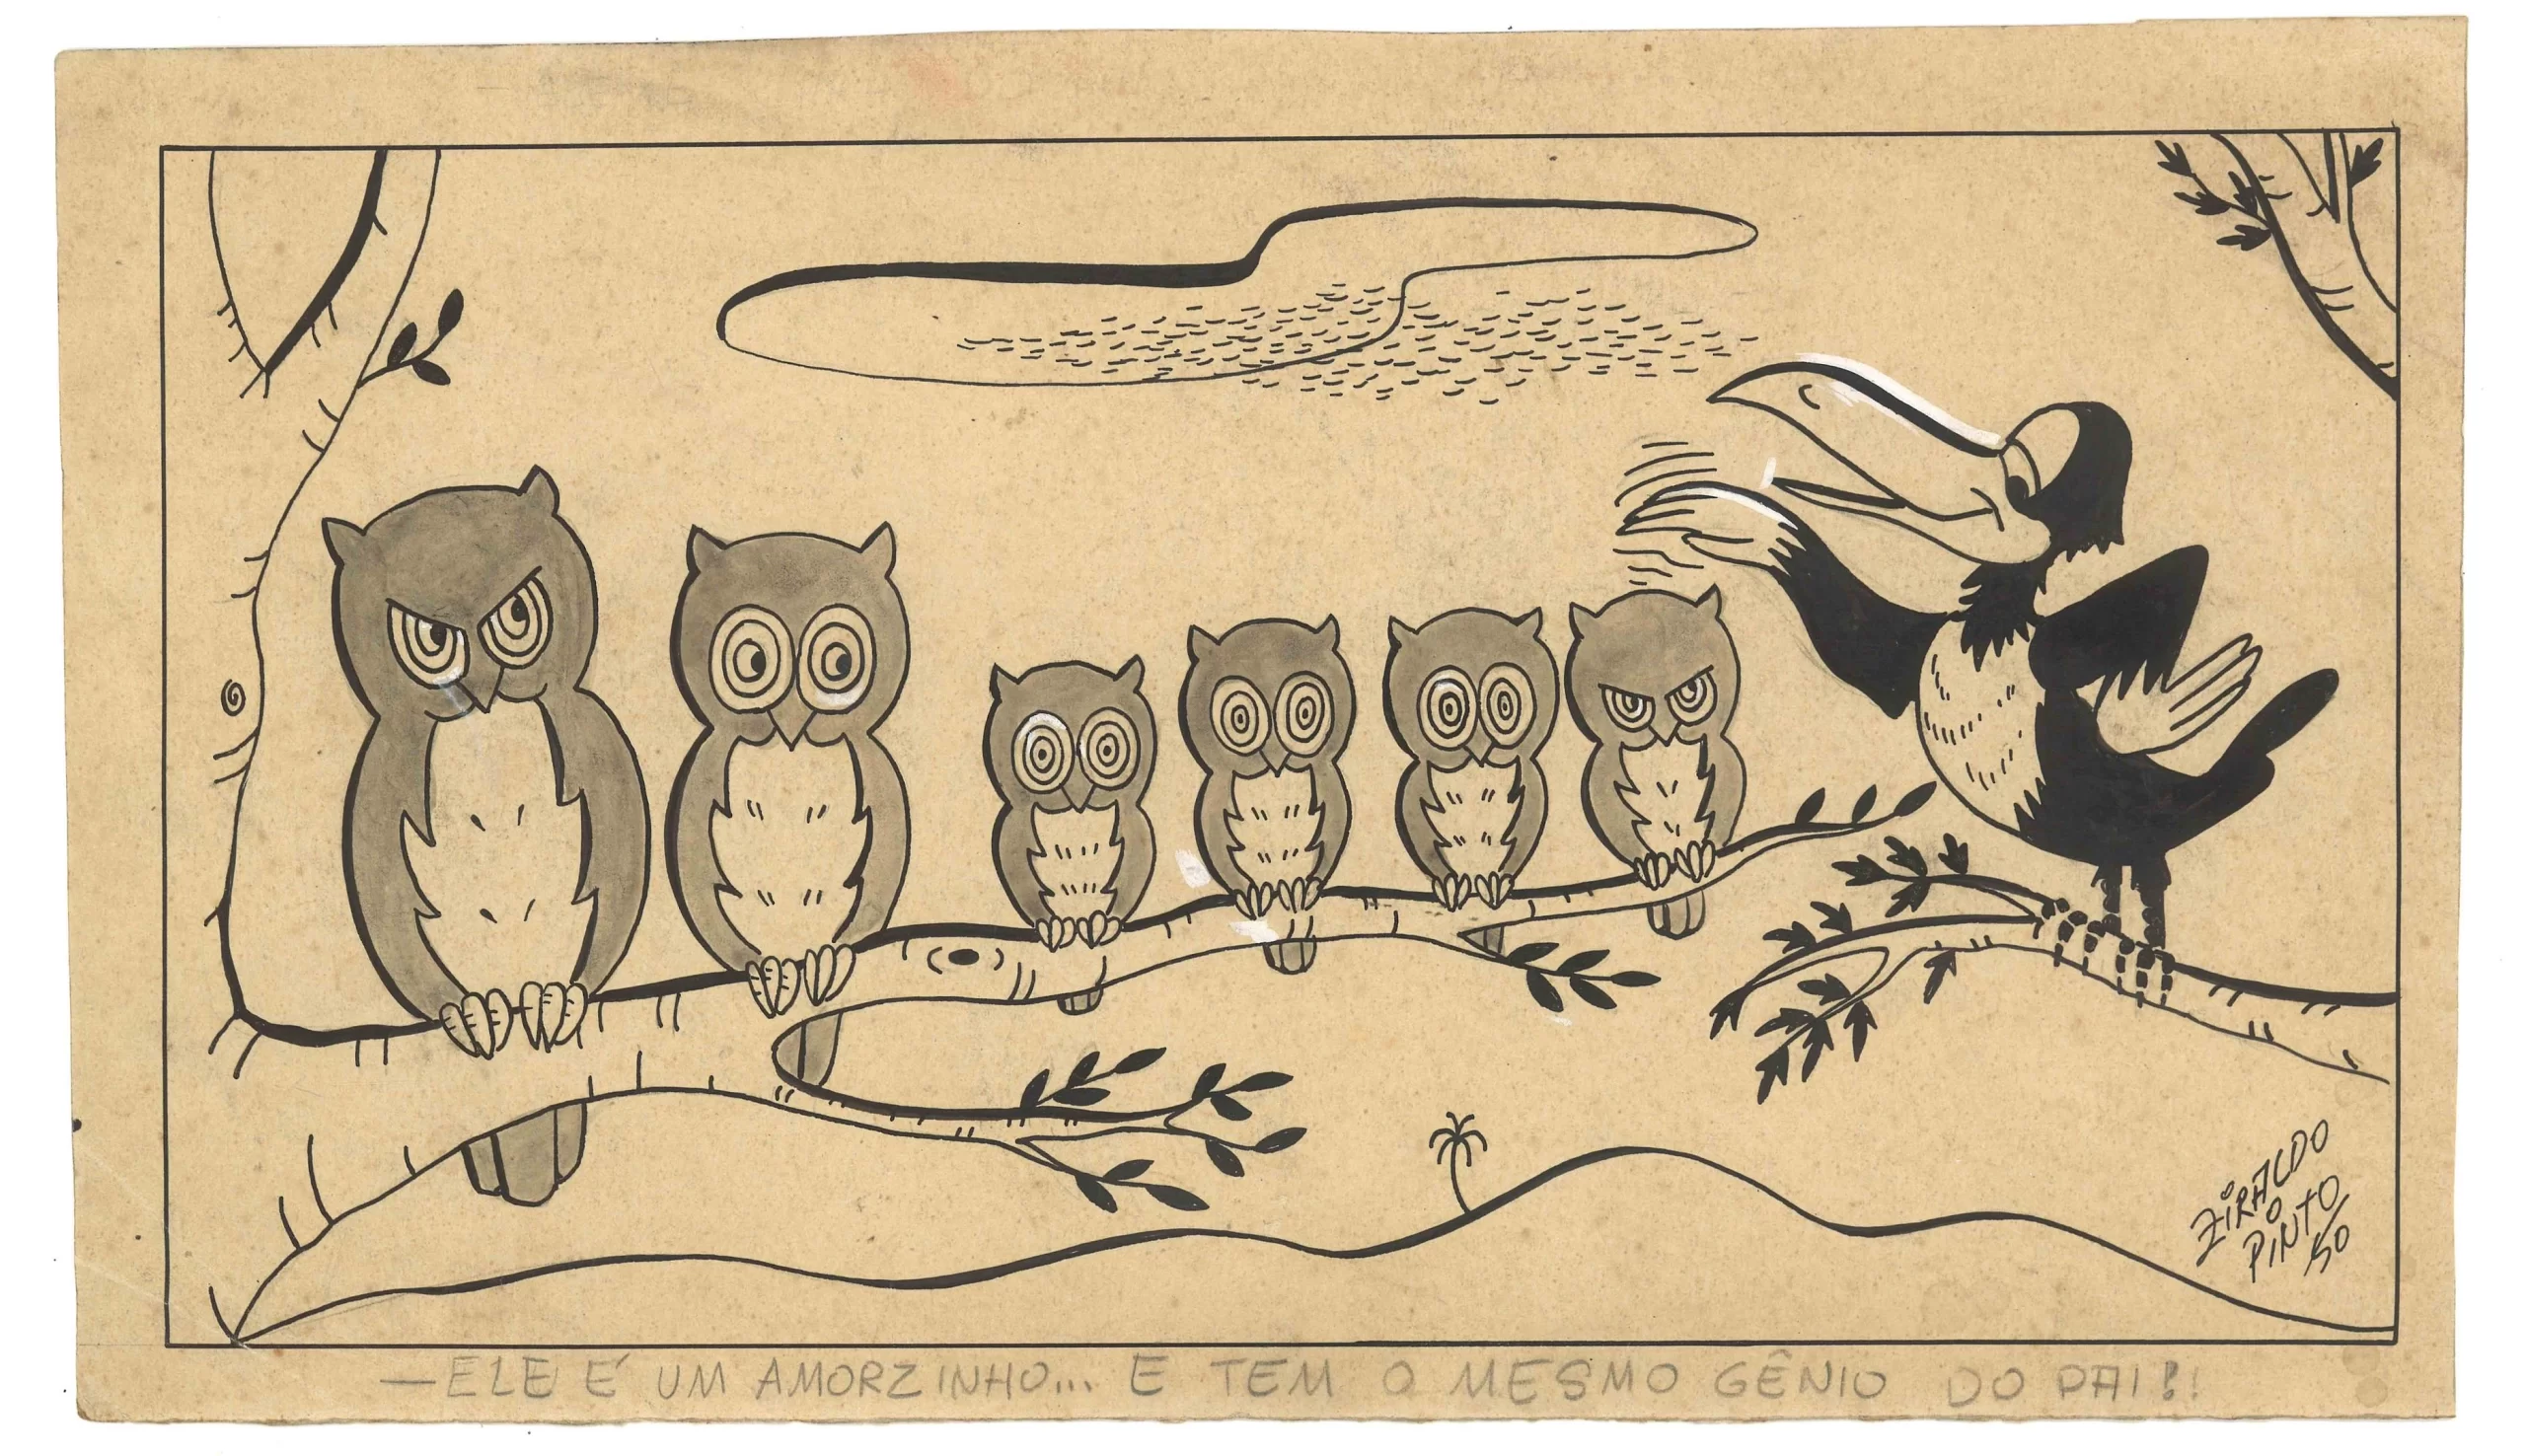 ZIRALDO
PINTO
/50
—ELE É UM AMORZINHO... E TEM O MESMO GÊNIO DO PAI!!